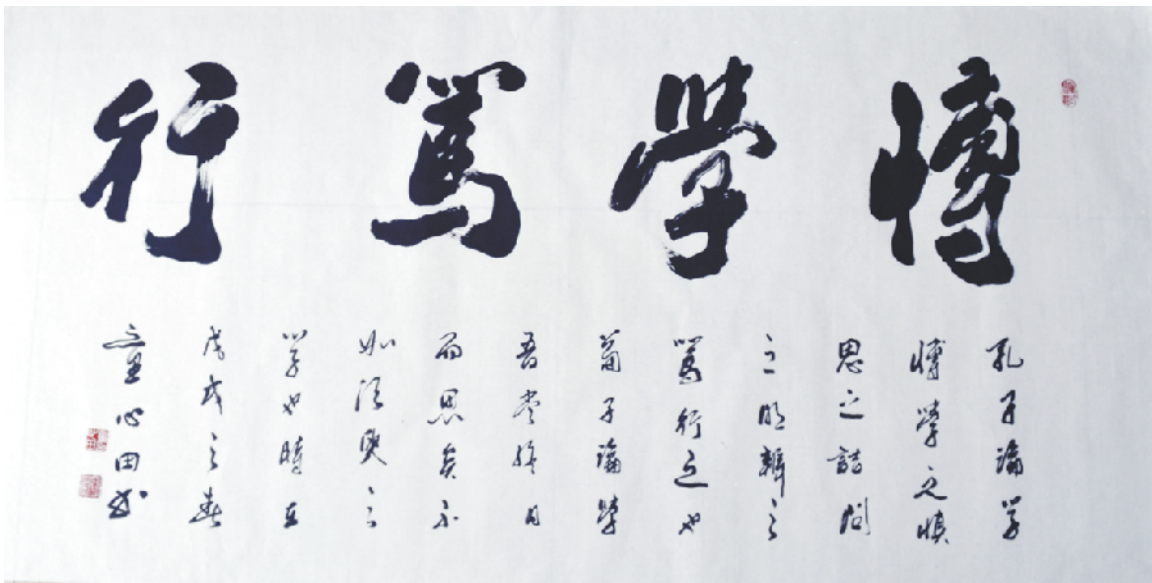 愽學篤行
孔子論学
愽學之慎
思之詰問
之明辨之
篤行之也
荀子論學
吾嘗終日
而思矣不
如須臾之
學也時在
戊戌之春
童心田书